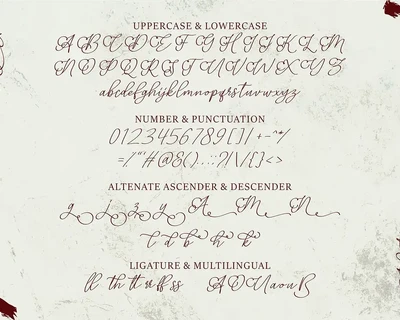 UPPERCASE & LOWERCASE
A B C D E F G H I J K L M
N O P Q R S T U V W X Y Z
abcdefghijklmnopqrstuvwxyz
NUMBER & PUNCTUATION
0123456789[]/+-~^/
=/,"“#@&()..:;?/\/[]<>
ALTENATE ASCENDER & DESCENDER
g j z y A M N
l d b h k
LIGATURE & MULTILINGUAL
ll th tt ss